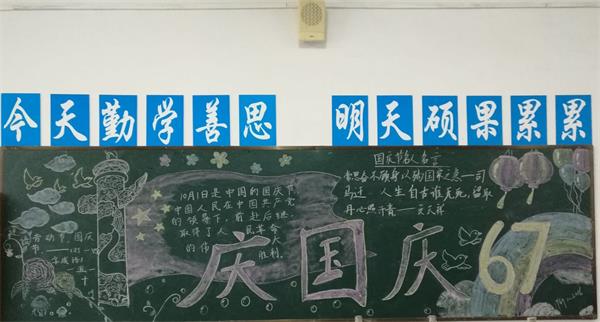 今天勤学善思 明天硕果累累
国庆节名人名言
常思奋不顾身以殉国家之急——司
马迁 人生自古谁无死,留取
丹心照汗青——文天祥
10月1日是中国的国庆节
中国人民在中国共产党
的领导下,前赴后继,
取得了人民革命
的伟大胜利。
劳动节 国庆
节
庆国庆
67